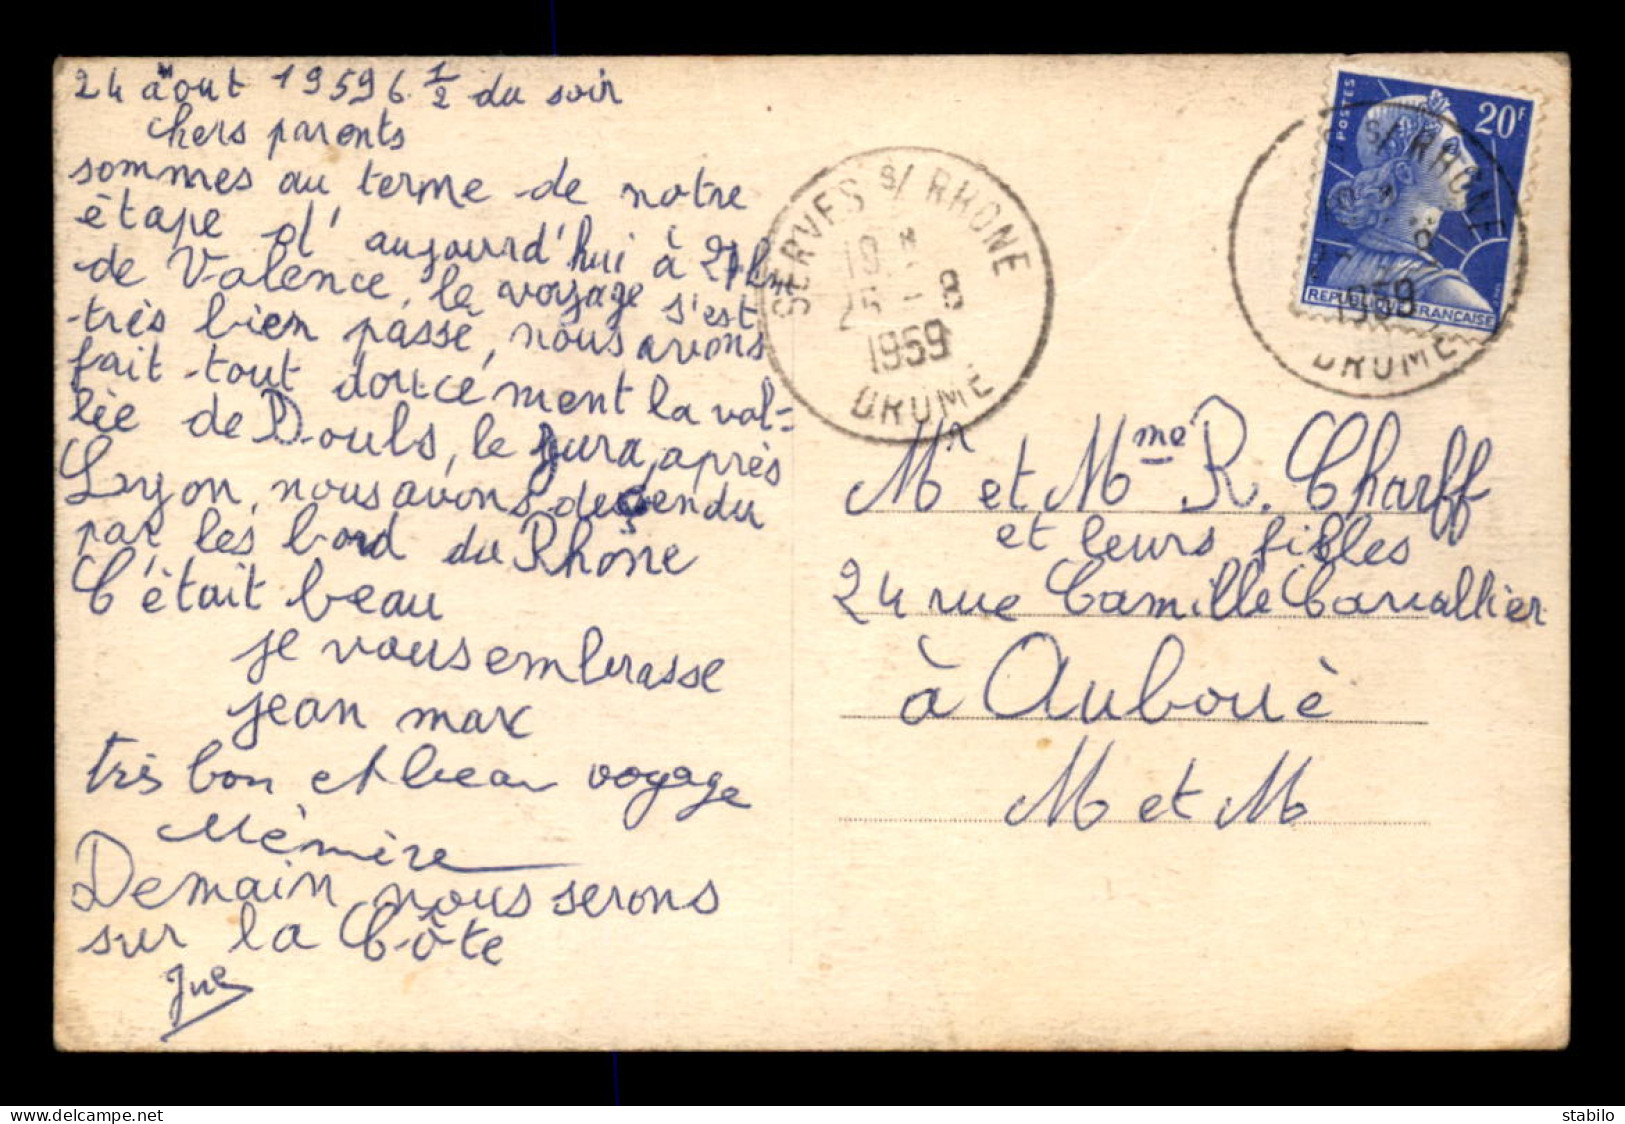 24 aout 1959 6 1/2 du soir
chers parents
sommes au terme de notre
étape d'aujourd'hui à 27 km
de Valence, le voyage s'est
très bien passé, nous avons
fait tout doucement la val-
lée de Doubs, le Jura, après
Lyon, nous avons descendu
par les bord du Rhône
C'était beau
je vous embrasse
jean marc
très bon et beau voyage
Mémère
Demain nous serons
sur la Côte
SERVES s/ RHONE
25 - 8
1959
DROME
POSTES
20F
REPUBLIQUE FRANÇAISE
s/ RHONE
1959
DROME
Mr et Mme R. Charff
et leurs filles
24 rue Camille Cavallier
à Auboué
M et M
delcampe.net
stabilo